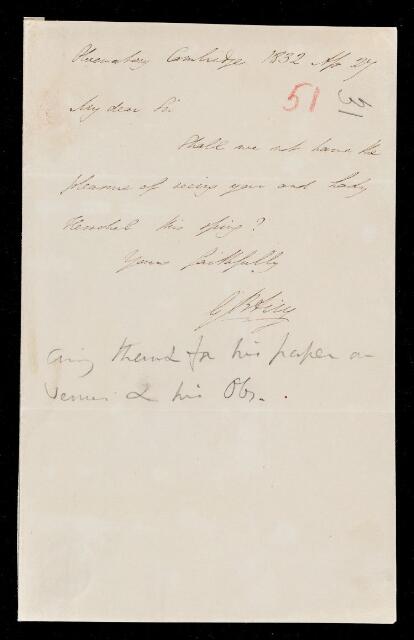 Observatory Cambridge 1832 Ap 27
51
31
My dear Sir
Shall we not have the
pleasure of seeing you and Lady
Herschel this spring?
Yours faithfully
G B Airy
thank for his paper on
Venus & his Obs.